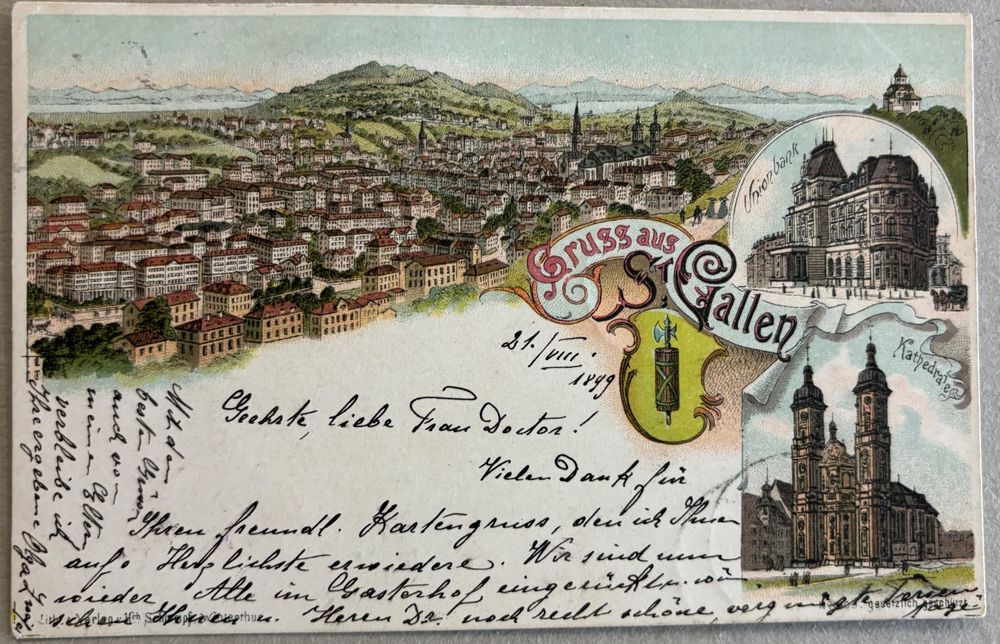 Gruss aus
St. Gallen
Unionbank
Kathedrale
21./VIII.
1899
Geehrte, liebe Frau Doctor!
Vielen Dank für
Ihren freundl. Kartengruss, den ich Ihnen
aufs Herzlichste erwiedere. Wir sind nun
wieder Alle im Gasterhof eingerückt u. wün
schen Ihnen u. Herrn Dr. noch recht schöne, vergnügte
Mit den
besten Grüssen
auch von
meinen Eltern
verbleibe ich
Ihre ergebene
Lith. u. Verlag v.
gesetzlich geschützt